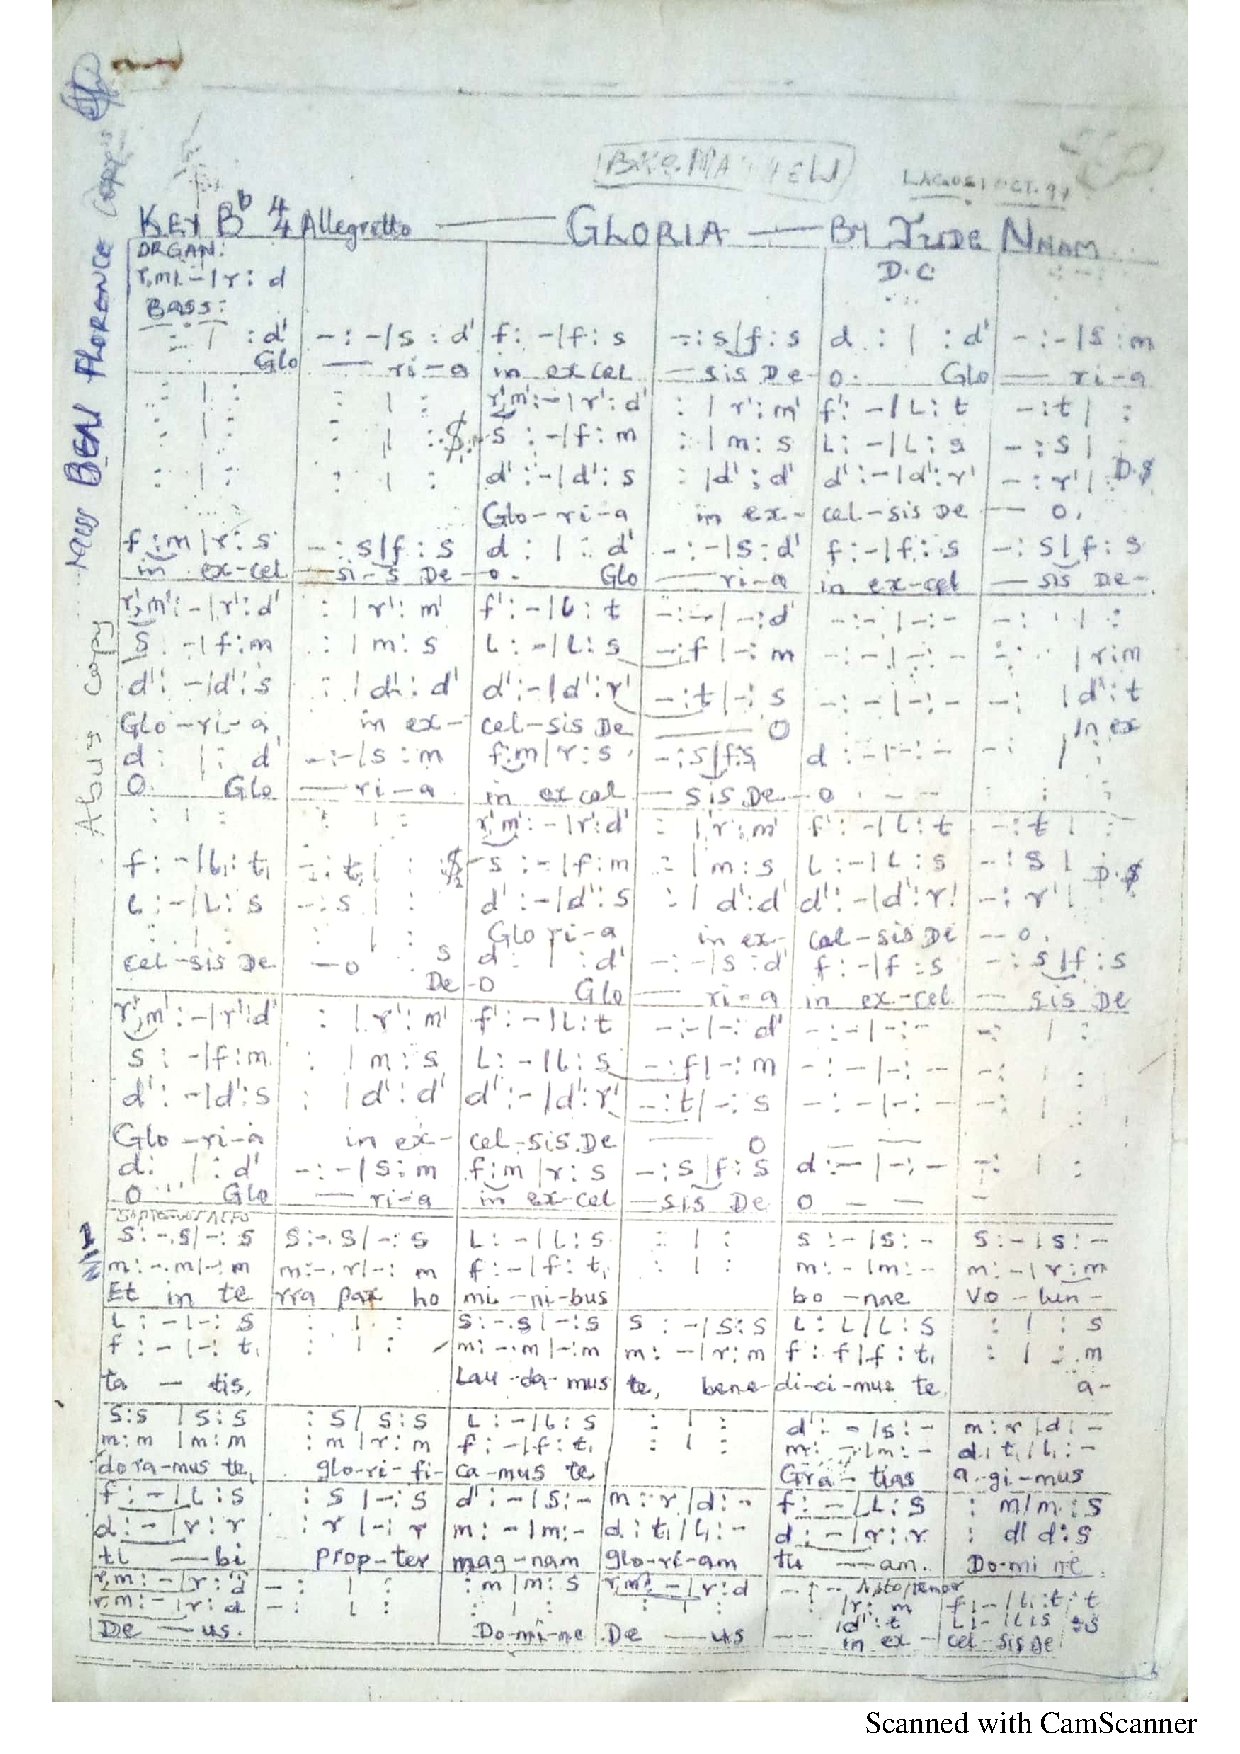 LAGOS OCT. 94
KEY Bb 4/4 Allegretto — GLORIA — BY JUDE NNAM
ORGAN: D.C
r,m:-|r : d
BASS:
: | : d' -:-|s : d' f:-|f:s -:s|f:s d : | : d' -:-|s:m
Glo — ri-a in excel —sis De-o. Glo — ri-a
: | : : | : r',m':-|r':d' : |r':m' f':-|L:t -:t| :
: | : : | : $ s :-|f:m : |m:s L:-|L:s -:s|
: | : : | : d':-|d':s : |d':d' d':-|d':r' -:r'| : D.$
Glo-ri-a in ex- cel-sis De — o.
f:m|r:s -:s|f:s d : | : d' -:-|s:d' f:-|f:s -:s|f:s
in ex-cel —si-s De-o. Glo —ri-a in ex-cel —sis De-
r',m':-|r':d' : |r':m' f':-|L:t -:-|-:d' -:-|-:- -: | :
s :-|f:m : |m:s L:-|L:s -:f|-:m -:-|-:- -: |r:m
d':-|d':s : |d':d' d':-|d':r' -:t|-:s -:-|-:- -: |d':t
Glo-ri-a, in ex- cel-sis De — O In ex
d : | : d -:-|s:m f:m|r:s -:s|f:s d :-|-:- -: | :
O. Glo —ri-a in excel —sis De-o
: | : : | : r',m':-|r':d' : |r':m' f':-|L:t -:t| :
f:-|L₁:t₁ -:t₁| : $ s :-|f:m : |m:s L:-|L:s -:s| : D.$
L:-|L:s -:s| : d':-|d':s : |d':d d':-|d':r' -:r'|
Glo ri-a in ex- cel-sis De — o.
: | : : | : s d : | : d' -:-|s:d' f:-|f:s -:s|f:s
cel-sis De —o De-o Glo — ri-a in ex-cel — sis De
r',m':-|r':d' : |r':m' f':-|L:t -:-|-:d' -:-|-:- -: | :
s :-|f:m : |m:s L:-|L:s -:f|-:m -:-|-:- -: | :
d':-|d':s : |d':d' d':-|d':r' -:t|-:s -:-|-:- -: | :
Glo-ri-a in ex- cel-sis De — O —
d: | : d' -:-|s:m f:m|r:s -:s|f:s d:-|-:- -: | :
O Glo —ri-a in ex-cel —sis De O —
s:-.s|-:s s:-.s|-:s L:-|L:s : | : s:-|s:- s:-|s:-
m:-.m|-:m m:-.r|-:m f:-|f:t₁ : | : m:-|m:- m:-|r:m
Et in te rra pax ho mi-ni-bus bo-nae vo-lun-
L:-|-:s : | : s:-.s|-:s s:-|s:s L:L|L:s : | : s
f:-|-:t₁ : | : m:-.m|-:m m:-|r:m f:f|f:t₁ : | : m
ta — tis, Lau-da-mus te, bene-di-ci-mus te a-
s:s|s:s : s|s:s L:-|L:s : | : d':-|s:- m:r|d:-
m:m|m:m : m|r:m f:-|f:t₁ : | : m:-|m:- d:t₁|L₁:-
dora-mus te, glo-ri-fi- ca-mus te Gra-tias a-gi-mus
f:-|L:s : s|-:s d':-|s:- m:r|d:- f:-|L:s : m|m:s
d:-|r:r : r|-:r m:-|m:- d:t₁|L₁:- d:-|r:r : d|d:s
ti — bi prop-ter mag-nam glo-ri-am tu — am. Do-mi ne
r,m:-|r:d -: | : : m|m:s r,m:-|r:d -: Alto/tenor
r,m:-|r:d -: | : : | : : | : |r:m f:-|L:t:t
|d':t L:-|L:s :s
De — us. Do-mi-ne De — us in ex — cel-sis De
Scanned with CamScanner